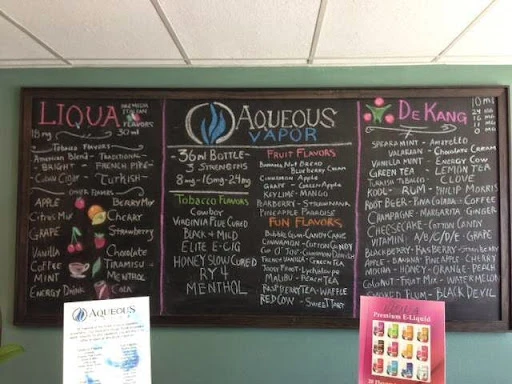 LIQUA
PREMIUM
ITALIAN
FLAVORS
18mg 30ml
Tobacco Flavors
American Blend - Traditional
Bright - French Pipe
Cuban Cigar - Turkish
Other Flavors
Apple Berry Mix
Citrus Mix Cherry
Grape Strawberry
Vanilla Chocolate
Coffee Tiramisu
Mint Menthol
Energy Drink Cola
AQUEOUS
VAPOR
36ml Bottle-
3 Strengths
8mg-16mg-24mg
Tobacco Flavors
Cowboy
Virginia Flue Cured
Black + Mild
Elite E-Cig
Honey Slow Cured
RY 4
Menthol
Fruit Flavors
Banana Nut Bread
Blueberry Cream
Cinnamon Apple
Grape - Green Apple
Keylime - Mango
Barberry - Strawnana
Pineapple Paradise
Fun Flavors
Bubble Gum - Candy Cane
Cinnamon - Cotton Candy
Cinn Danish
French Vanilla - Green Tea
Juicy Fruit - Lychaloupe
Malibu - Peach Tea
Raspberry Tea - Waffle
Red Cow - Sweet Tart
DE KANG
10ml
24 mg
16 mg
11 mg
0 mg
Spearamint - Amaretto
Valarian - Chocolate Cream
Vanilla Mint - Energy Cow
Green Tea - Lemon Tea
Turkish Tobacco - Clove
Kool - Rum - Philip Morris
Root Beer - Pina Colada - Coffee
Champagne - Margarita - Ginger
Cheesecake - Cotton Candy
Vitamin A/B/C/D/E - Grape
Blackberry - Raspberry - Strawberry
Apple - Banana - Pineapple - Cherry
Mocha - Honey - Orange - Peach
Coconut - Fruit Mix - Watermelon
Plum - Black Devil
AQUEOUS
Premium E-Liquid